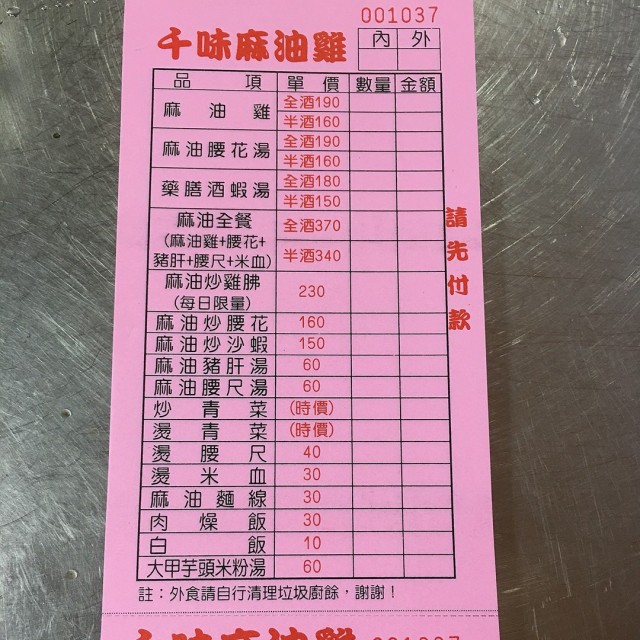 001037
千味麻油雞 內 外
品項 單價 數量 金額
麻油雞 全酒190
半酒160
麻油腰花湯 全酒190
半酒160
藥膳酒蝦湯 全酒180
半酒150
麻油全餐 全酒370
(麻油雞+腰花+
豬肝+腰尺+米血) 半酒340
麻油炒雞胇
(每日限量) 230
麻油炒腰花 160
麻油炒沙蝦 150
麻油豬肝湯 60
麻油腰尺湯 60
炒青菜 (時價)
燙青菜 (時價)
燙腰尺 40
燙米血 30
麻油麵線 30
肉燥飯 30
白飯 10
大甲芋頭米粉湯 60
請先付款
註：外食請自行清理垃圾廚餘，謝謝！
千味麻油雞 001037